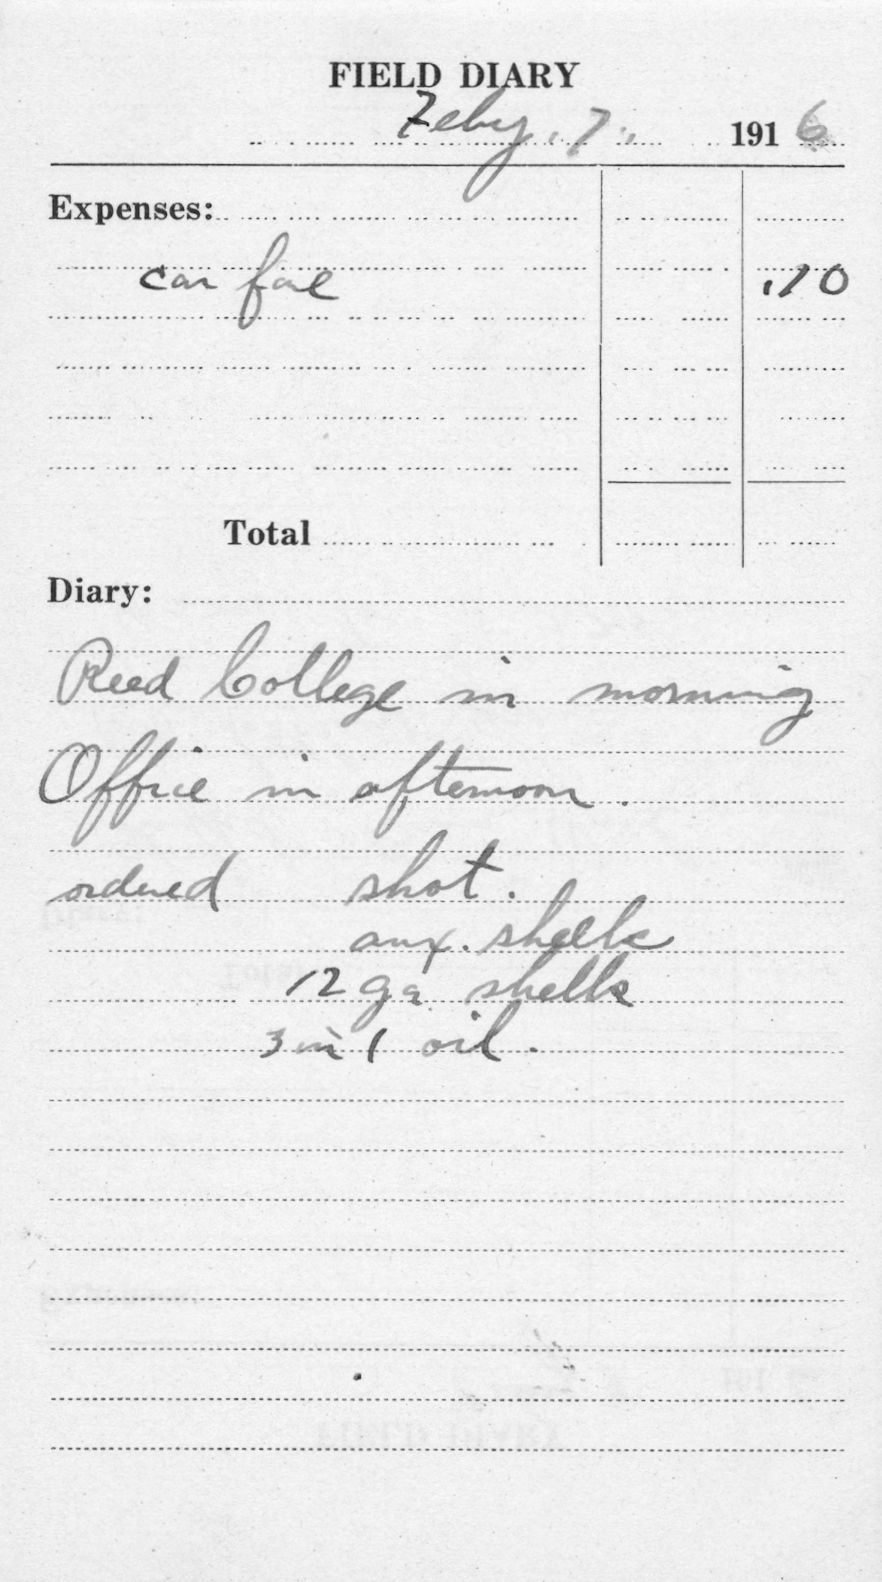 FIELD DIARY
Feby. 7. 1916
Expenses:
car fare .10
Total
Diary:
Reed College in morning
Office in afternoon.
ordered shot.
aux. shells
12 ga shells
3 in 1 oil.